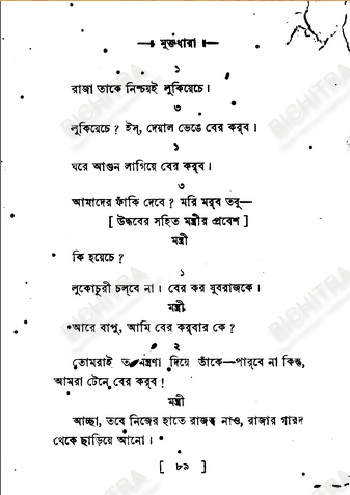 মুক্তধারা
১
রাজা তাকে নিশ্চয়ই লুকিয়েচে।
৩
লুকিয়েচে? ইস্, দেয়াল ভেঙে বের করব।
১
ঘরে আগুন লাগিয়ে বের করব।
৩
আমাদের ফাঁকি দেবে? মরি মরব তবু—
[ উদ্ধবের সহিত মন্ত্রীর প্রবেশ ]
মন্ত্রী
কি হয়েচে?
১
লুকোচুরী চলবে না। বের কর যুবরাজকে।
মন্ত্রী
আরে বাপু, আমি বের করবার কে?
২
তোমরাই ত মন্ত্রণা দিয়ে তাঁকে—পারবে না কিন্তু,
আমরা টেনে বের করব!
মন্ত্রী
আচ্ছা, তবে নিজের হাতে রাজত্ব নাও, রাজার গারদ
থেকে ছাড়িয়ে আনো।
[ ৮৯ ]
BICHITRA
BICHITRA
BICHITRA
BICHITRA
BICHITRA
BICHITRA